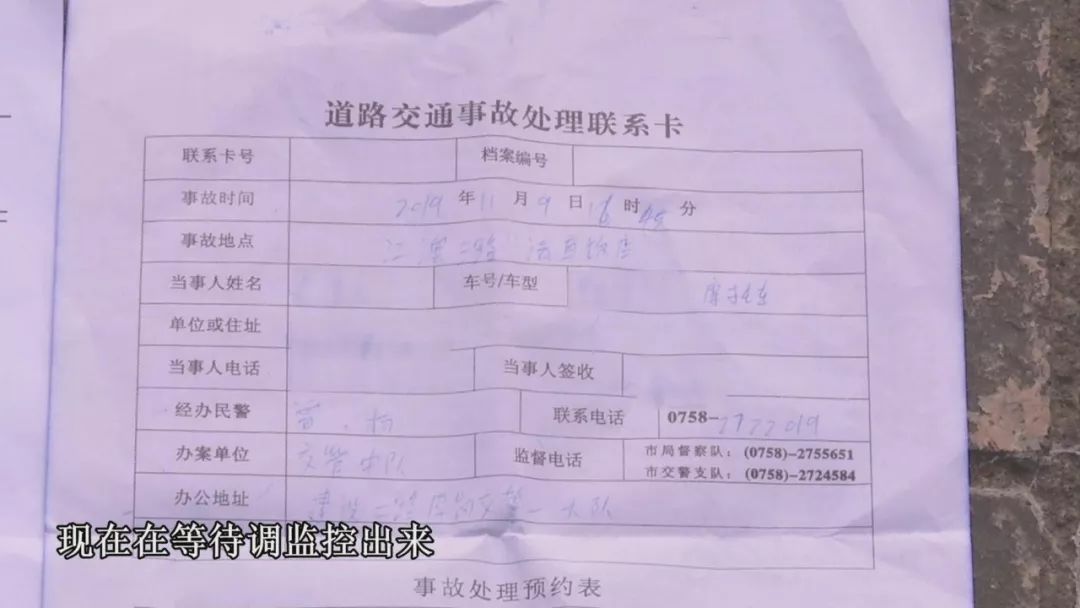 道路交通事故处理联系卡
联系卡号 档案编号
事故时间 2019 年 11 月 9 日 16 时 45 分
事故地点 江滨二路
当事人姓名 车号/车型 摩托车
单位或住址
当事人电话 当事人签收
经办民警 联系电话 0758-2772019
办案单位 交警中队 监督电话 市局督察队：(0758)-2755651
市交警支队：(0758)-2724584
办公地址 建设二路 交警一大队
现在在等待调监控出来
事故处理预约表